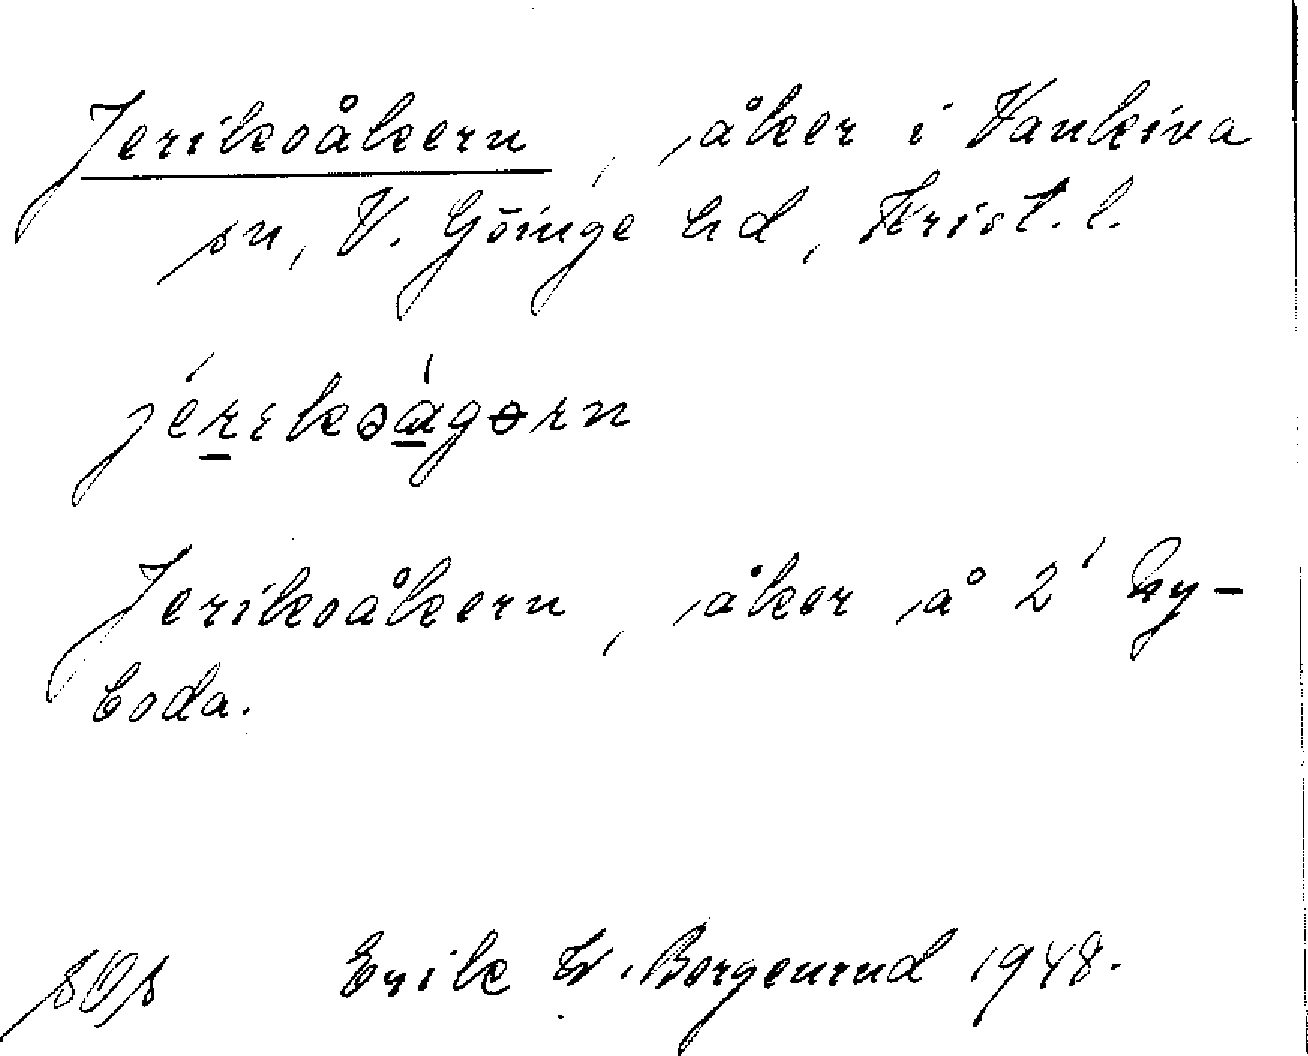 Jerikoåkern, åker i Vankiva
sn, V. Göinge hd, Krist. l.
jérikoágərn
Jerikoåkern, åker å 2 Ny-
boda.
Erik W. Borgenrud 1948.